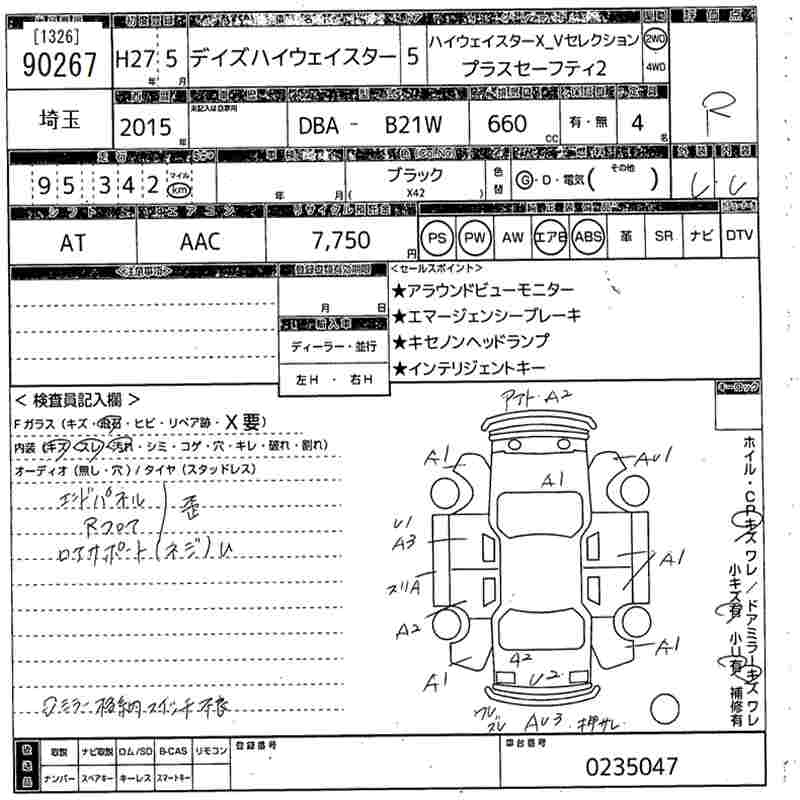 [1326]
90267
H27年 5月
デイズハイウェイスター
5
ハイウェイスターX_Vセレクション
プラスセーフティ2
2WD
4WD
R
埼玉
2015年
DBA - B21W
660 CC
有・無
4名
走行
95,342
マイル
km
年 月
ブラック
( X42 )
色替
G・D・電気( その他 )
シフト
エアコン
リサイクル預託金
AT
AAC
7,750円
PS PW AW エアB ABS 革 SR ナビ DTV
<注意事項>
月 日
輸入車
ディーラー・並行
左H ・ 右H
<セールスポイント>
★アラウンドビューモニター
★エマージェンシーブレーキ
★キセノンヘッドランプ
★インテリジェントキー
< 検査員記入欄 >
Fガラス(キズ・飛石・ヒビ・リペア跡・X要)
内装(キズ・スレ・汚れ・シミ・コゲ・穴・キレ・破れ・割れ)
オーディオ(無し・穴)/タイヤ(スタッドレス)
エンドパネル
Rフロア
歪
ロアサポート(ネジ)U
ドミラー格納スイッチ不良
A2
A1
A1
AU1
U1
A3
A1
スリA
A2
A1
A1
A2
U2
ワレ
ズレ
AU3 押サレ
キーロック
ホイル・CPキズ ワレ/ドアミラーキズ ワレ
小キズ有 小U有 補修有
後送品
取説 ナビ取説 ロム/SD B-CAS リモコン
ナンバー スペアキー キーレス スマートキー
登録番号
車台番号
0235047